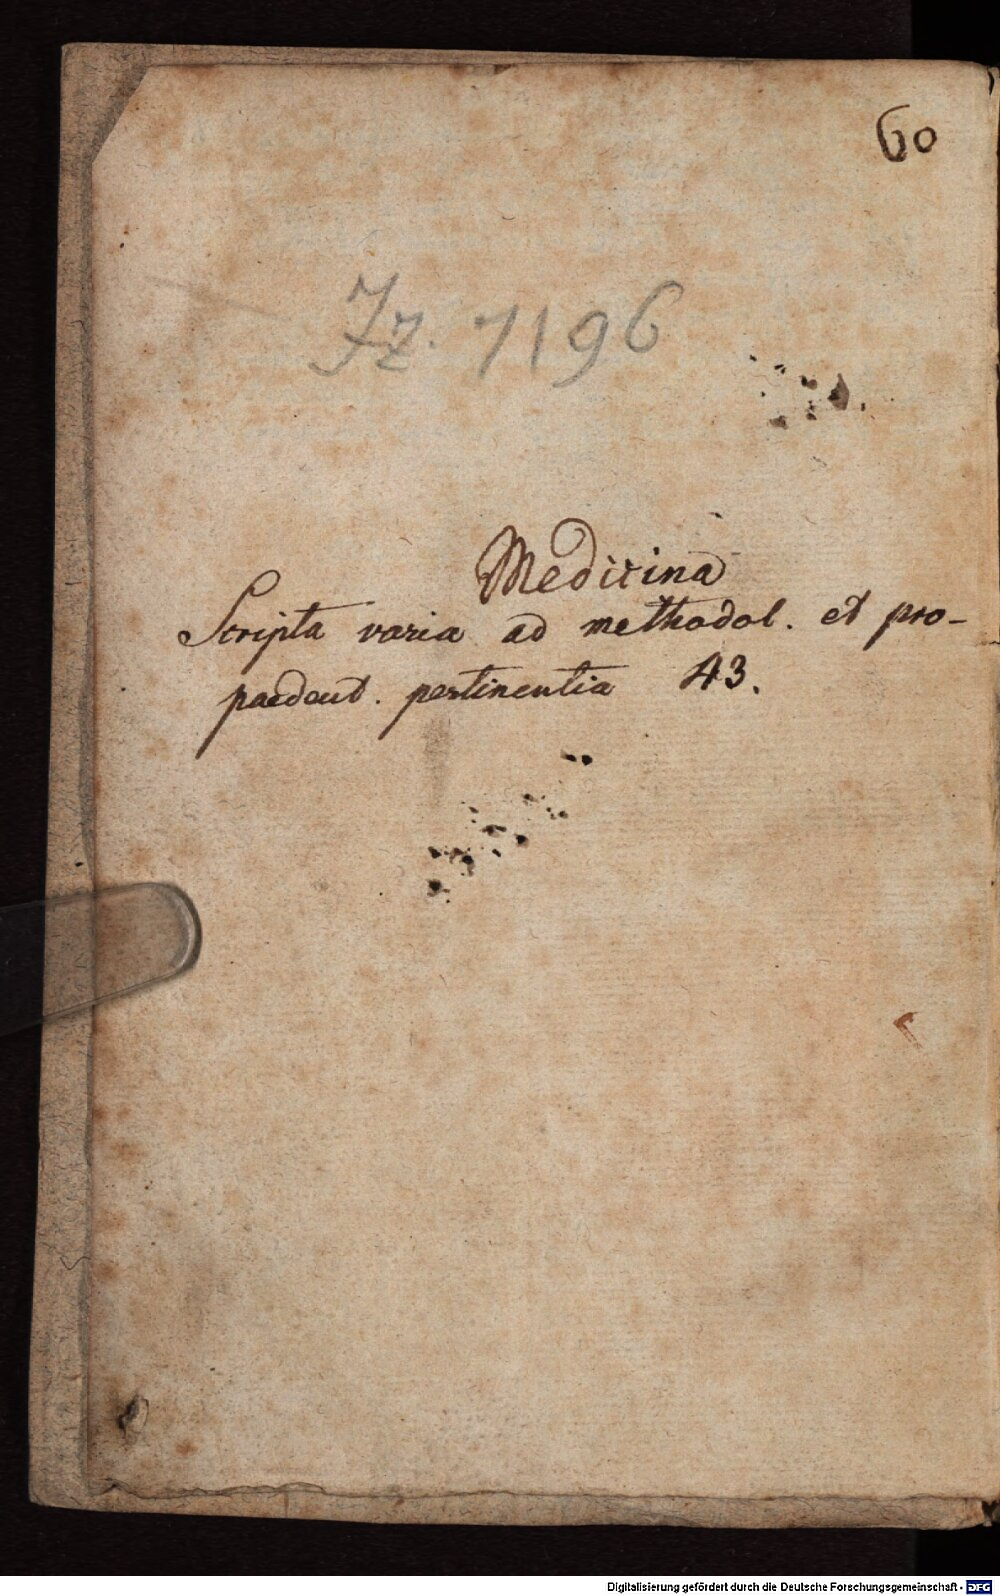 60
Jz. 7196
Medicina
Scripta varia ad methodol. et pro-
paedeut. pertinentia 43.
Digitalisierung gefördert durch die Deutsche Forschungsgemeinschaft - DFG